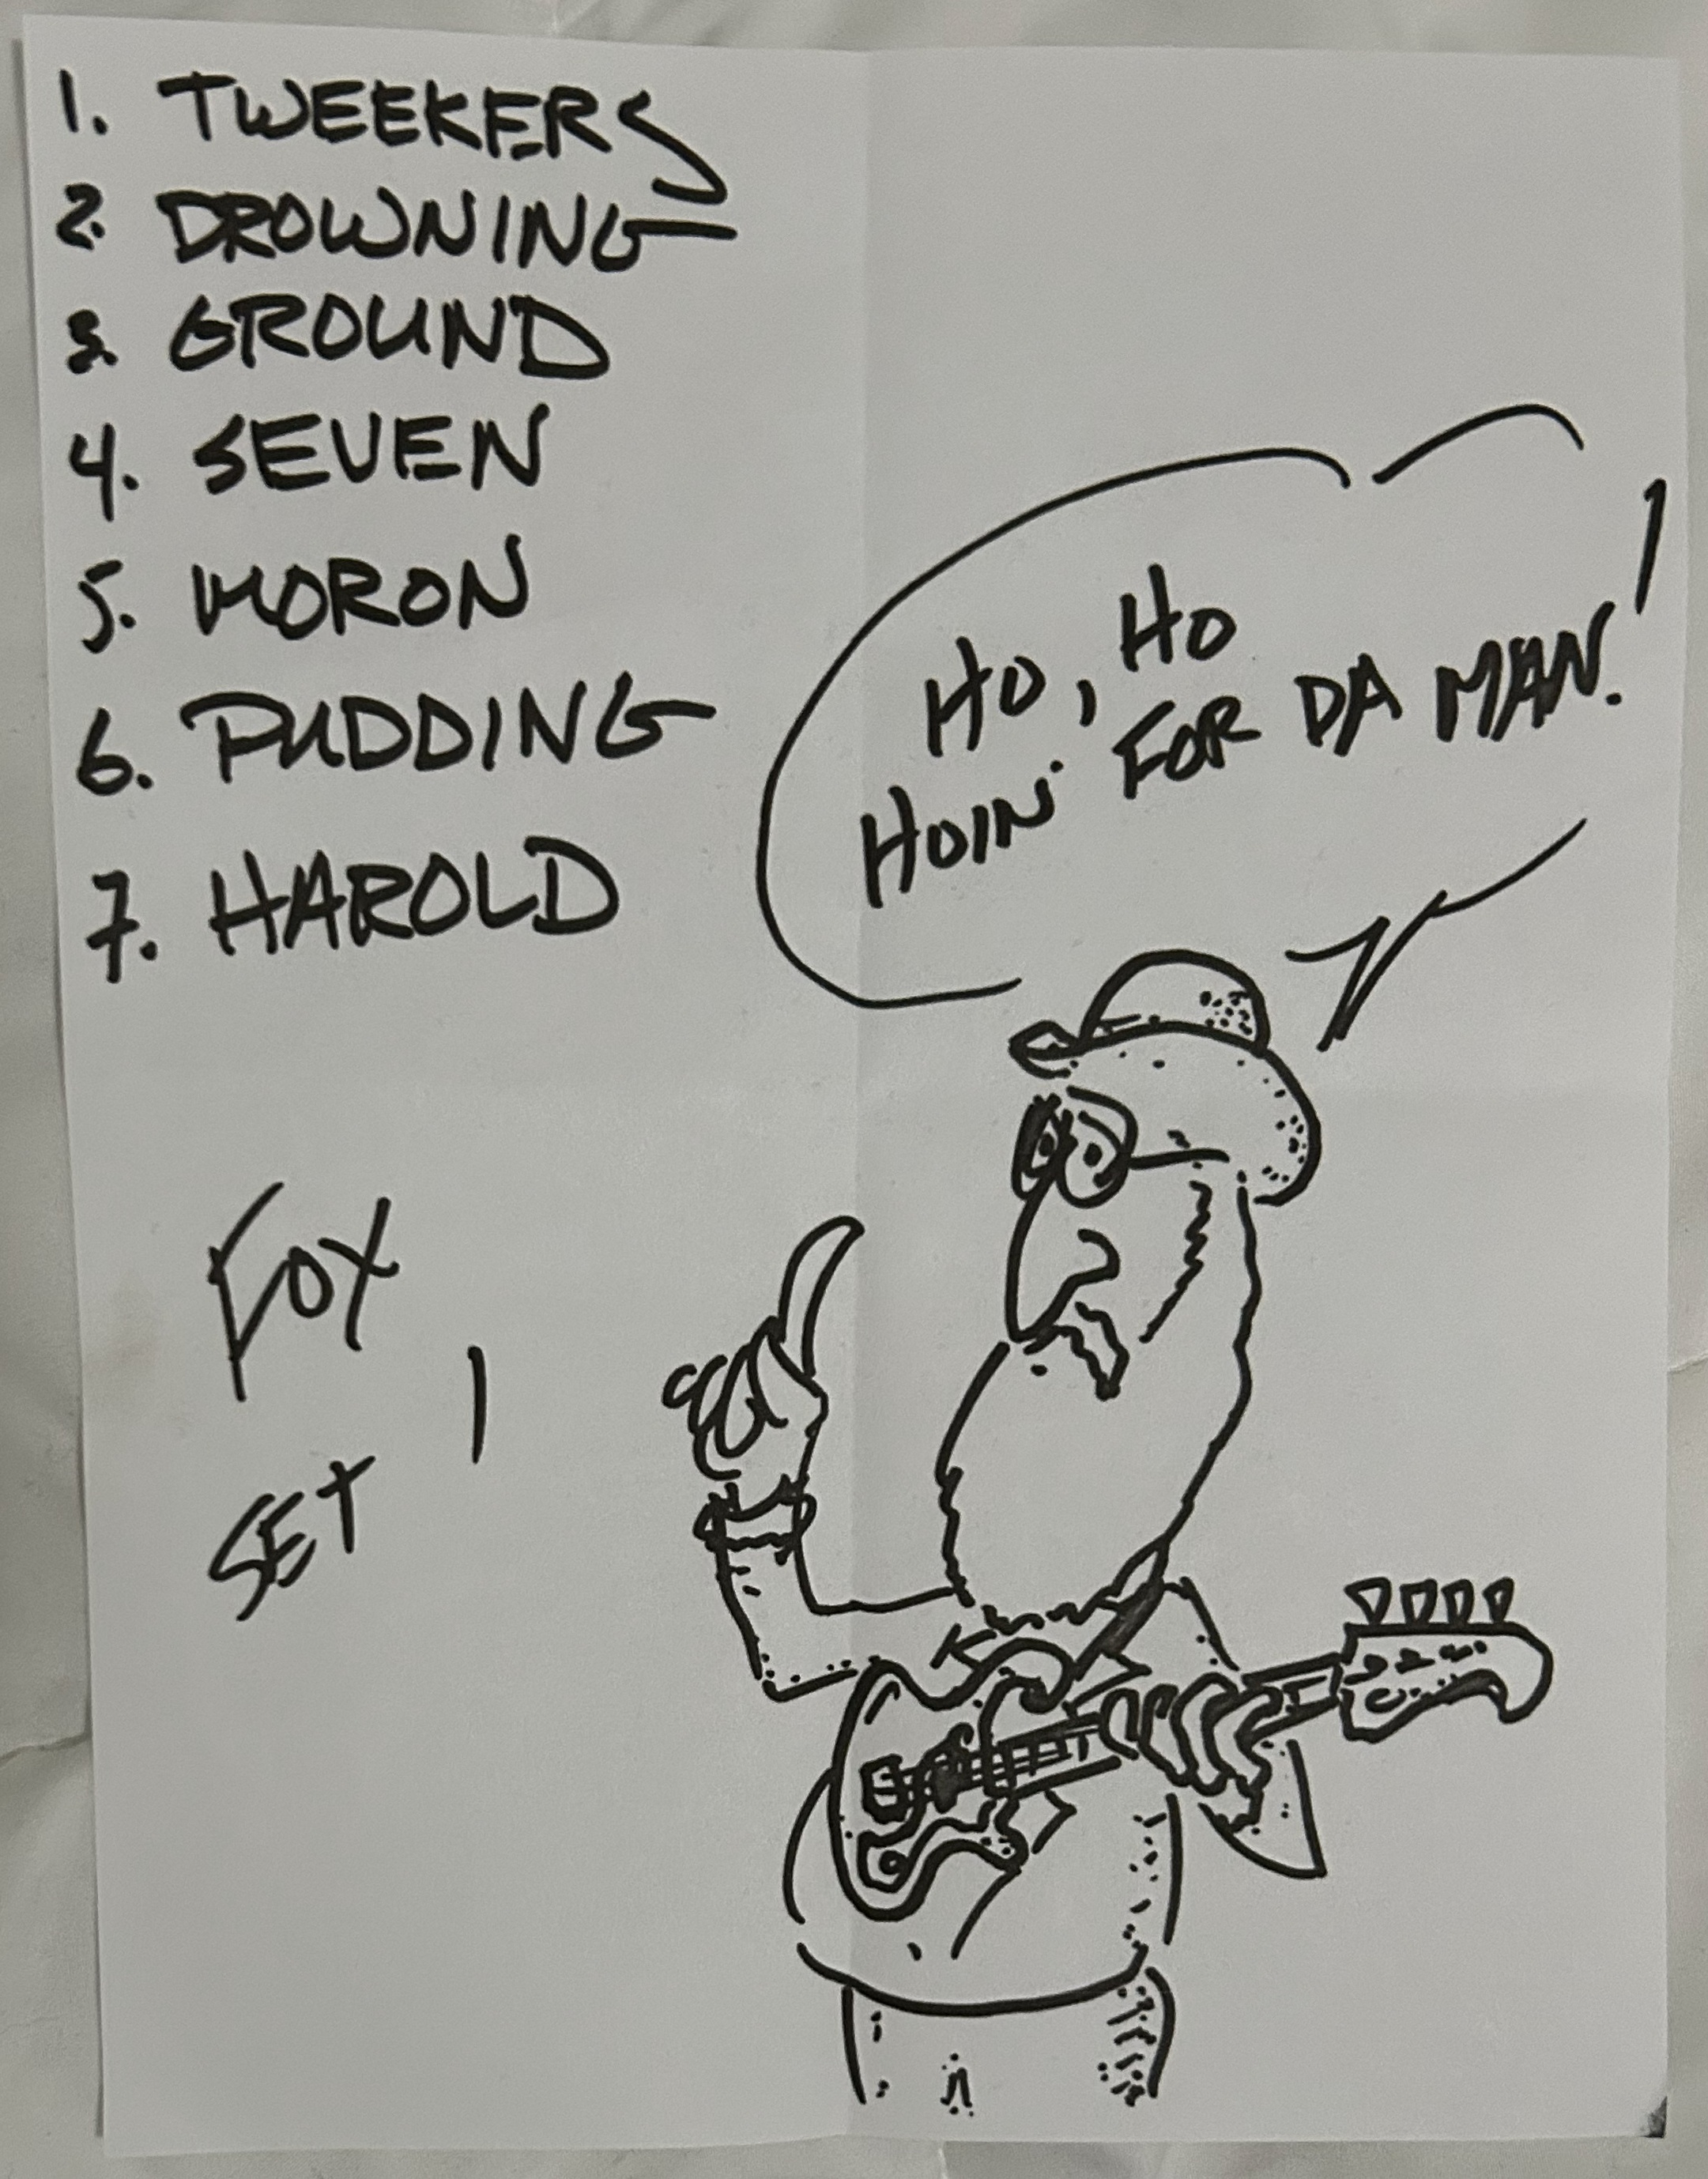 1. TWEEKERS
2. DROWNING
3. GROUND
4. SEVEN
5. MORON
6. PUDDING
7. HAROLD
HO, HO
HOIN' FOR DA MAN.
FOX
1
SET